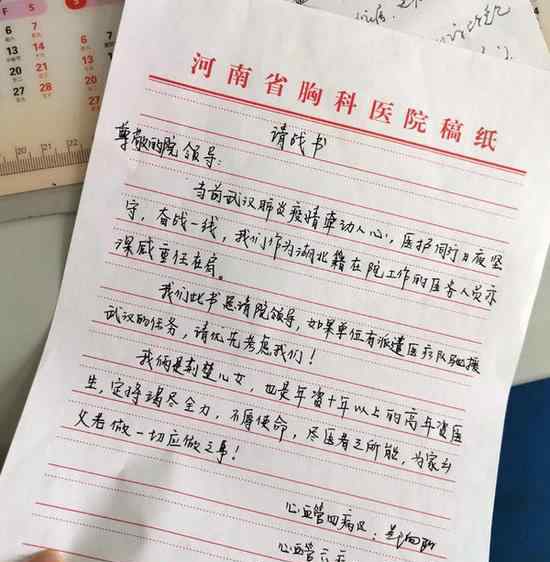 河南省胸科医院稿纸
请战书
尊敬的院领导：
当前武汉肺炎疫情牵动人心，医护同行日夜坚
守，奋战一线，我们作为湖北籍在院工作的医务人员亦
深感重任在肩。
我们此书恳请院领导，如果单位有派遣医疗队驰援
武汉的任务，请优先考虑我们！
我俩是荆楚儿女，也是年资十年以上的高年资医
生，定将竭尽全力，不辱使命，尽医者之所能，为家乡
父老做一切应做之事！
心血管四病区：
心血管六病